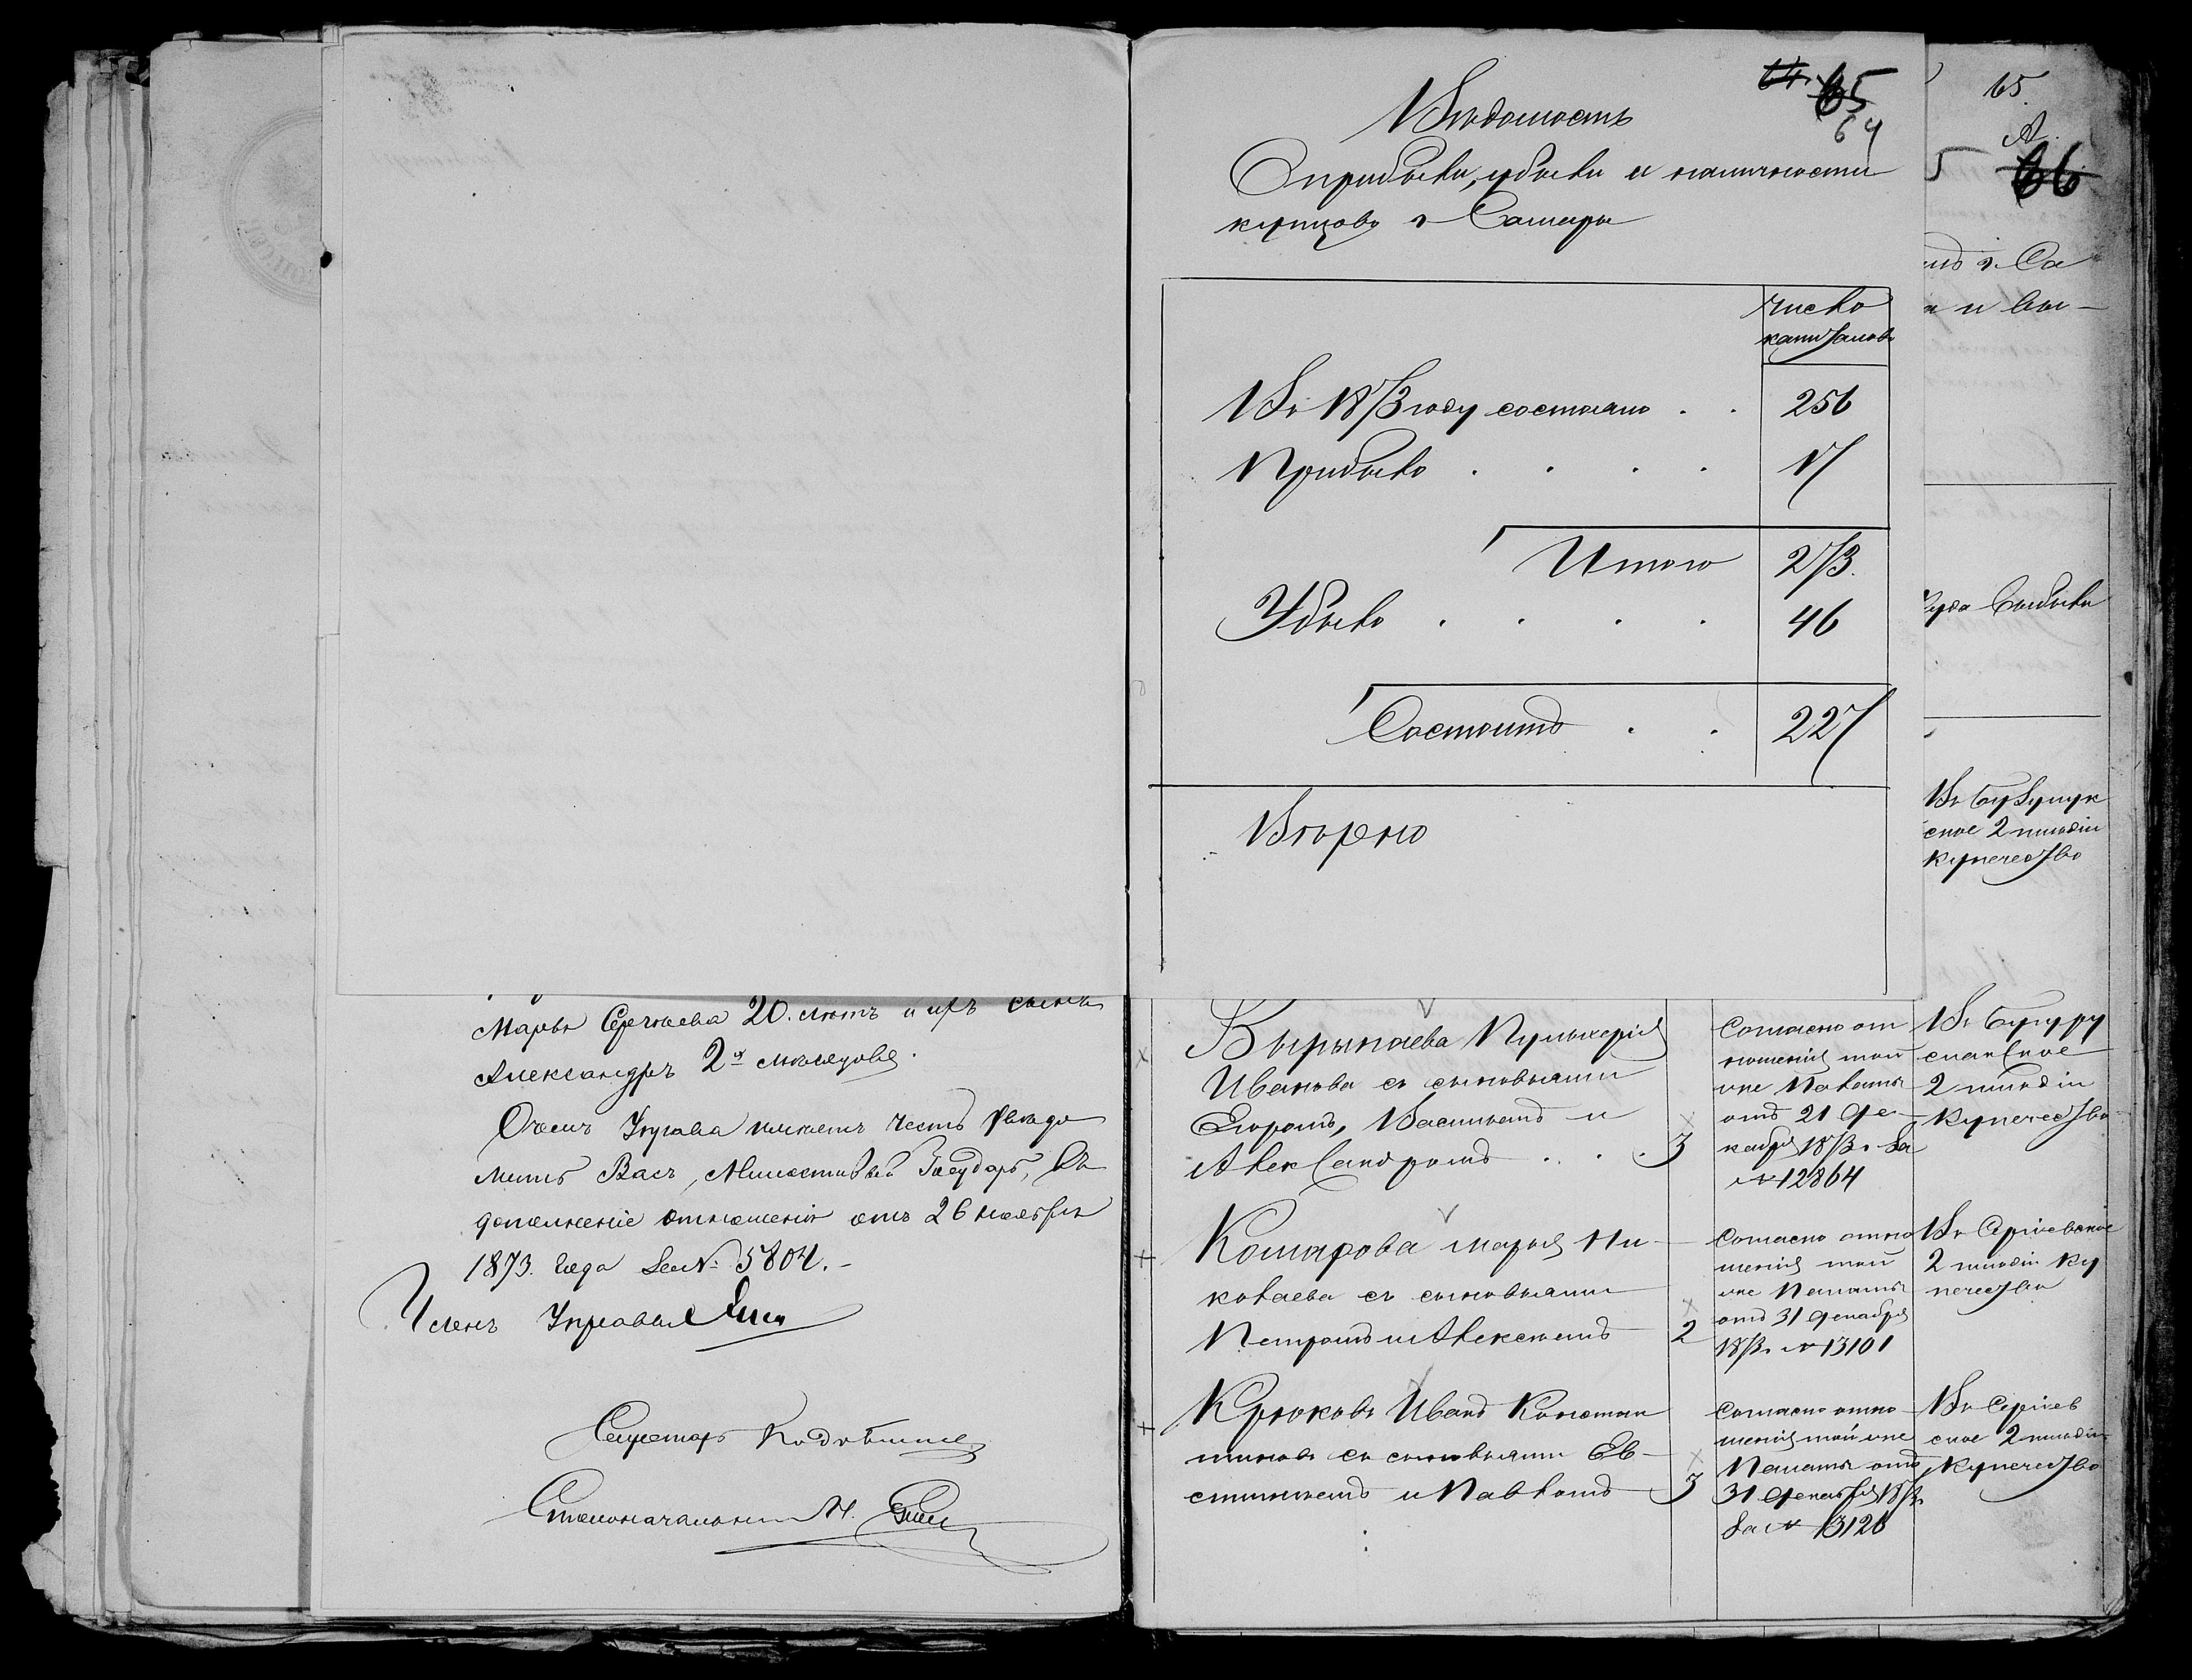 64. 65
64
Вѣдомость
О прибыли, убыли и наличности
купцовъ г. Самары
Число
капиталовъ
Въ 1873 году состояло . . 256
Прибыло . . . . 17
Итого 273.
Убыло . . . . 46
Состоитъ . . 227
Вѣрно
Марья Сергѣева 20. лѣтъ и ихъ сынъ
Александръ 2х мѣсяцовъ.
О чемъ Управа имѣетъ честь увѣдо
мить Васъ, Милостивый Государь, въ
дополненіе отношенія отъ 26 ноября
1873. года за № 5804. –
Членъ Управы
Секретарь
Столоначальникъ
Вырыпаева Пульхерія
Иванова съ сыновьями
Егоромъ, Василіемъ и
Александромъ . . . 3
Согласно от
ношенія той
же Палаты
отъ 21 де
кабря 1873 г. за
№ 12864
Въ Бугуру
сланское
2 гильдіи
купечество
Комарова Марья Ни-
колаева съ сыновьями
Петромъ и Алексѣемъ 2
Согласно отно
шенія той
же Палаты
отъ 31 декабря
1873 г. № 13101
Въ Сергіевское
2 гильдіи ку
печество
Крюковъ Иванъ Констан
тиновъ съ сыновьями Ев-
стигнѣемъ и Павломъ 3
Согласно отно
шенія той же
Палаты отъ
31 декабря 1873 г.
за № 13126
Въ Сергіев
ское 2 гильдіи
купечество
65.
66
мъ г. Са
а и вы-
Куда выбыли
Въ Бузулук
ское 2 гильдіи
купечество